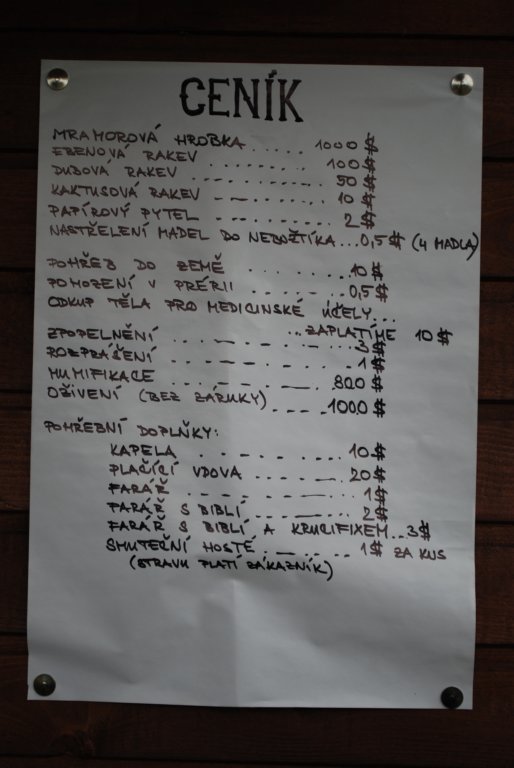 CENÍK
MRAMOROVÁ HROBKA ..... 1000 $
EBENOVÁ RAKEV ......... 100 $
DUBOVÁ RAKEV .......... 50 $
KAKTUSOVÁ RAKEV ....... 10 $
PAPÍROVÝ PYTEL ........ 2 $
NASTŘELENÍ MADEL DO NEBOŽTÍKA...0,5 $ (4 MADLA)
POHŘEB DO ZEMĚ ........ 10 $
POHOZENÍ V PRÉRII ..... 0,5 $
ODKUP TĚLA PRO MEDICINSKÉ ÚČELY...
...ZAPLATÍME 10 $
ZPOPELNĚNÍ ........ 3 $
ROZPRÁŠENÍ ........ 1 $
MUMIFIKACE ........ 800 $
OŽIVENÍ (BEZ ZÁRUKY) ..... 1000 $
POHŘEBNÍ DOPLŇKY:
KAPELA ......... 10 $
PLAČÍCÍ VDOVA ...... 20 $
FARÁŘ ......... 1 $
FARÁŘ S BIBLÍ ....... 2 $
FARÁŘ S BIBLÍ A KRUCIFIXEM...3 $
SMUTEČNÍ HOSTÉ ..... 1 $ ZA KUS
(STRAVU PLATÍ ZÁKAZNÍK)